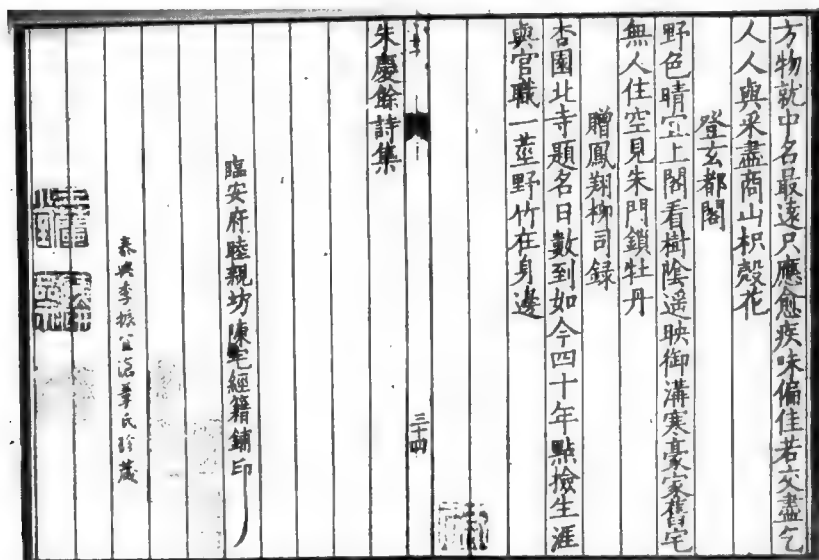 方物就中名最遠只應愈疾味偏佳若交盡乞
人人與采盡商山枳殼花
登玄都閣
野色晴宜上閣看樹陰遥映御溝寒豪家舊宅
無人住空見朱門鎖牡丹
贈鳳翔柳司録
杏園北寺題名日數到如今四十年點檢生涯
與官職一莖野竹在身邊
三十四
朱慶餘詩集
臨安府睦親坊陳宅經籍鋪印
泰興李振宜滄葦氏珍藏